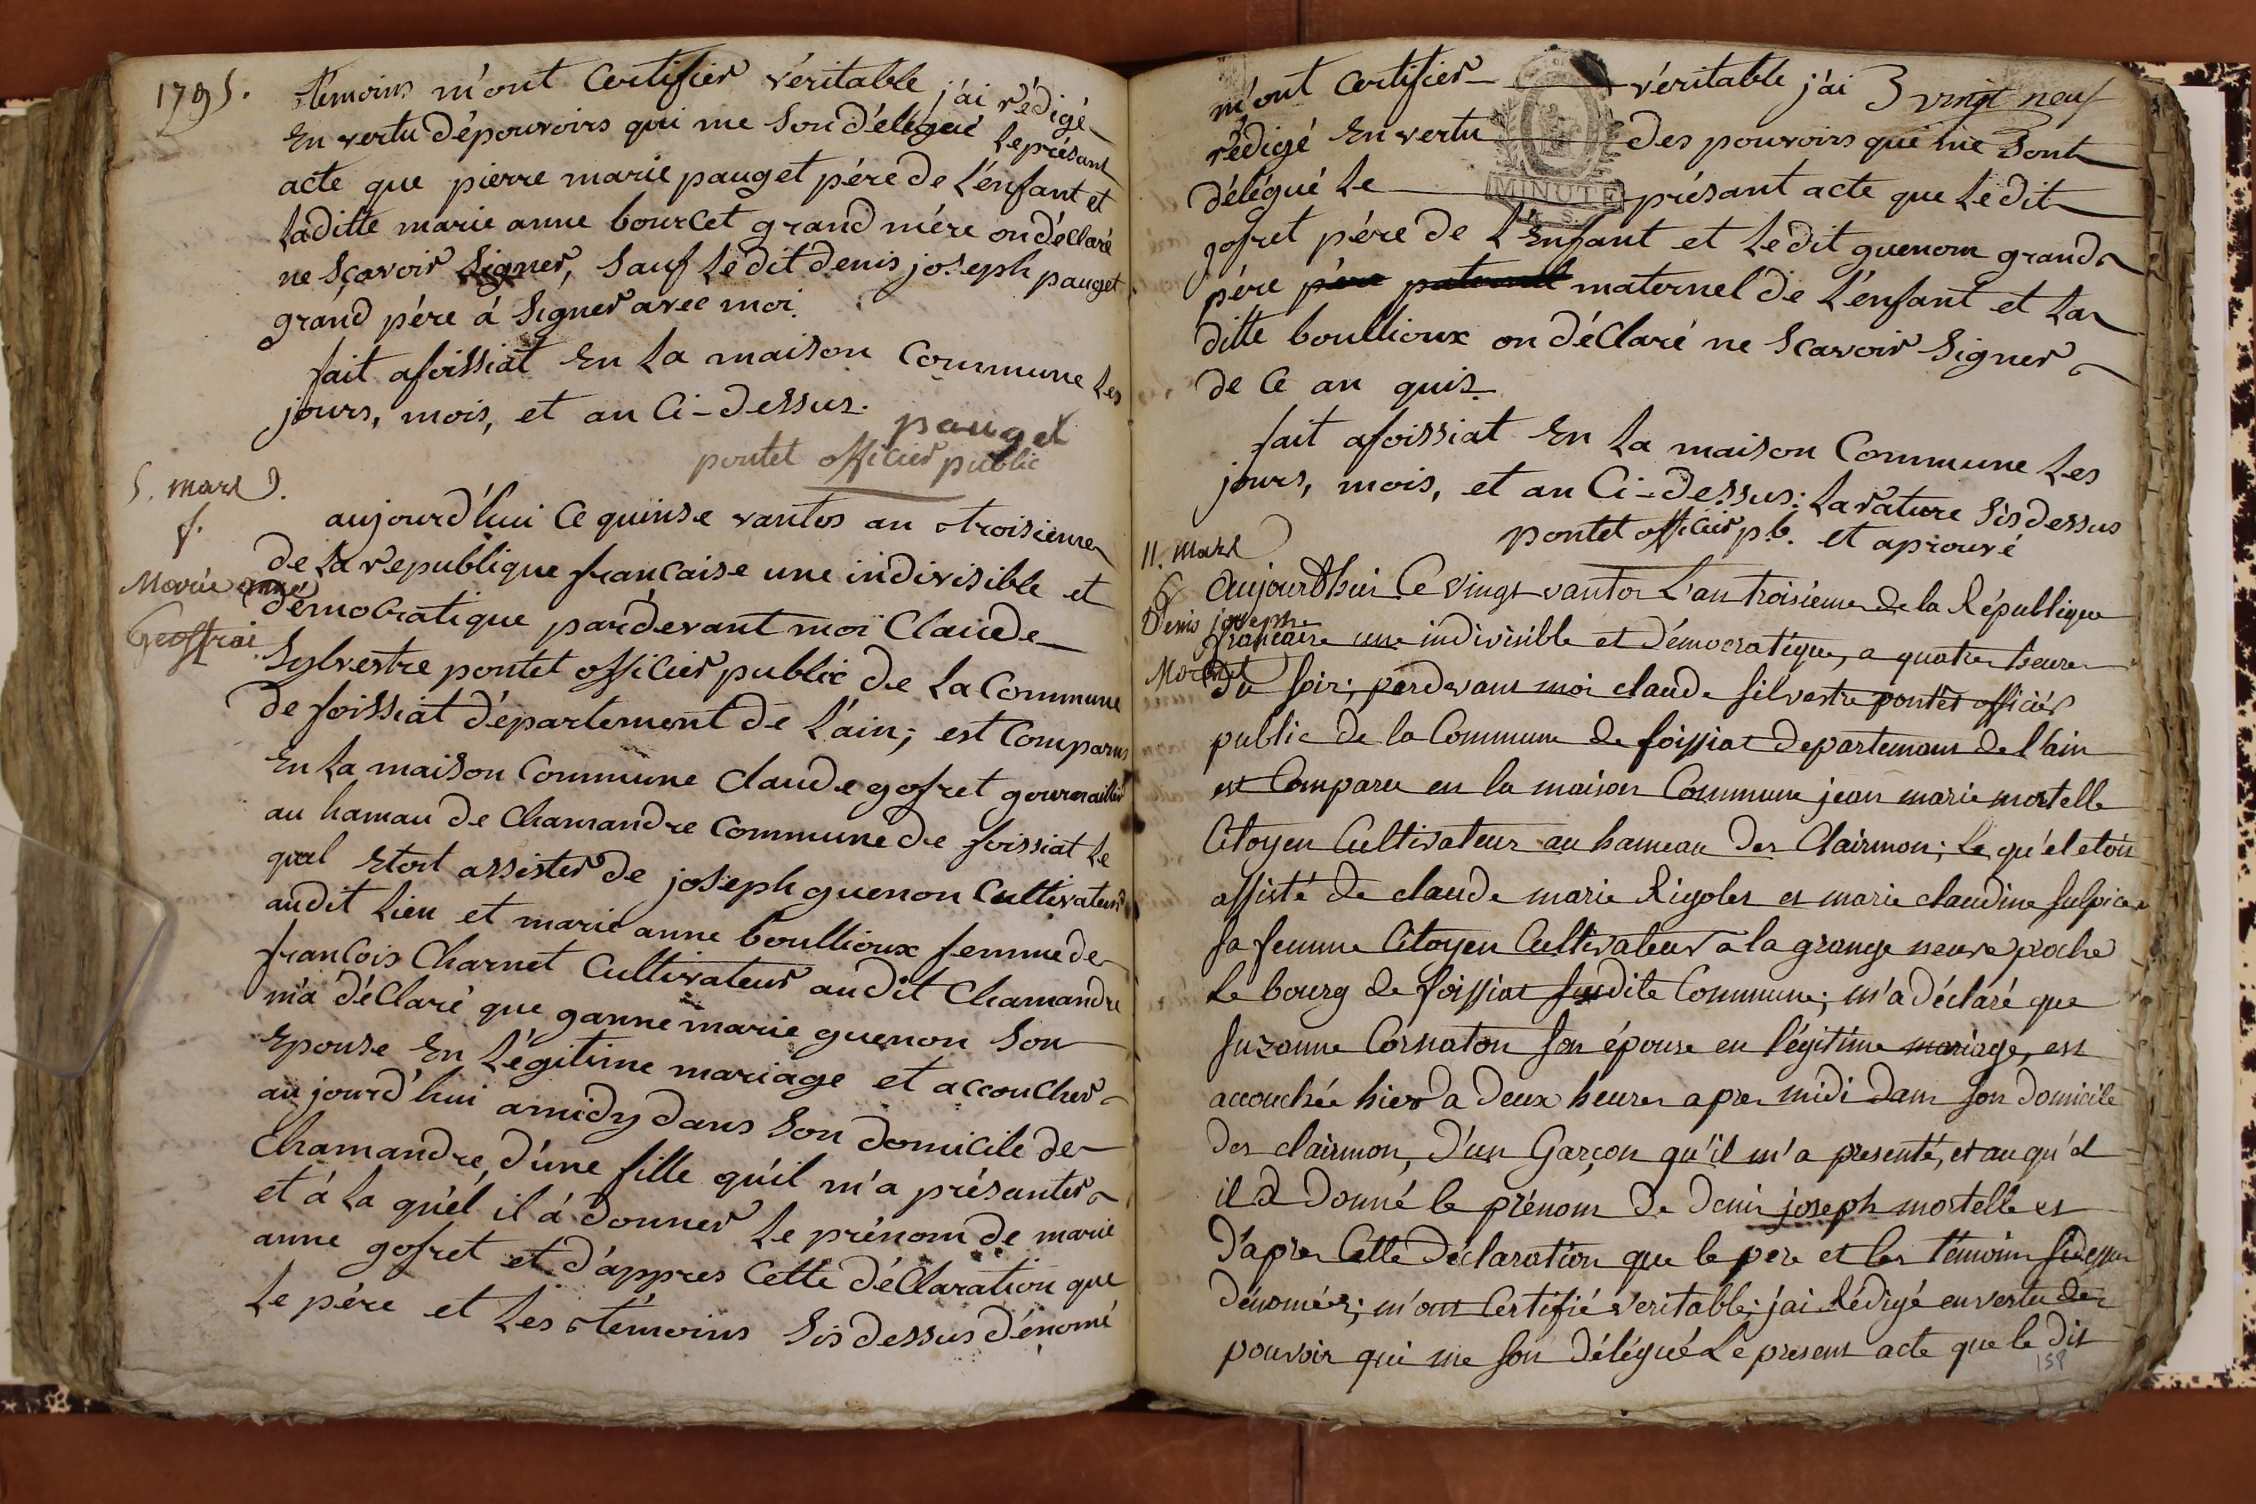 1795.
témoins m'ont certifier véritable j'ai rédigé
En vertu dépouvoirs qui me son délégué le présant
acte que pierre marie pauget pére de L'énfant et
Laditte marie anne bourcet grand mére on déclaré
ne Sçavoir Signer, Sauf Lédit denis joseph pauget
grand pére á Signer avec moi.
fait afoissiat En La maison Commune Les
jours, mois, et an Ci-dessus.
pauget
pontet officier public
5. mars
f.
Marie anne
Geoffrai
aujourd'hui Ce quinse vantos an troisieme
de La republique francaise une indivisible et
démocratique pardevant moi Claude
Sylvestre pontet officier public de La Commune
de foissiat département de L'ain; est Comparus
En La maison Commune Claude gofret
au hamau de Chamandre Commune de foissiat Le
quel Etoit assister de joseph guenon Cultivateur
audit Lieu et marie anne boullioux femme de
francois Charnet Cultivateur audit Chamandre
m'a déClaré que ganne marie guenon Son
Epouse En Légitime mariage et accoucher
aujourd'hui amidy dans Son domicile de
Chamandre, d'une fille qu'il m'a présanter
et á La quél il á donner Le prénom de marie
anne gofret et d'áppres Cette déClaration que
Le pére et Les témoins Sis dessus dénomé
3 vingt neuf
m'ont certifier véritable j'ai
rédigé En vertu des pouvoirs qui me Sont
délégué Le présant acte que Le dit
gofret pére de L'Enfant et Ledit guenom grand
pére pére paternel maternel de L'énfant et La
ditte boullioux on déClaré ne Scavoir Signer
de Ce an quis
MINUTE
fait afoissiat En La maison Commune Les
jours, mois, et an Ci-dessus: La rature Sisdessus
pontet officier p.b. et aprouvé
11. mars
G
Denis joseph
Aujourdhui Ce vingt vantos L'an troisieme de la République
francaise une indivisible et démocratique, a quatre heures
du soir; perdevant moi claude silvestre pontet officiér
public de la Commune de foissiat departemant de l'ain
est Comparu en la maison Commune jean marie mortelle
Citoyen Cultivateur au hameau des Clairmon; le qu'el etoit
assisté de claude marie Rigoles et marie claudine sulpice
sa femme Citoyen Cultivateur a la grange neuve proche
le bourg de foissiat susdite Commune; m'a déclaré que
suzanne Cornaton son épouse en légitime mariage, est
accouchée hier a deux heures apres midi dans son domicile
des clairmon, d'un Garçon qu'il m'a presenté, et au qu'el
il a donné le prénom de denis joseph mortelle et
D'apres Cette déclaration que le pere et les témoins sidessus
dénomés; m'ont Certifié veritable; j'ai Rédigé en vertu des
pouvoir qui me son délégué Le present acte que le dit
158